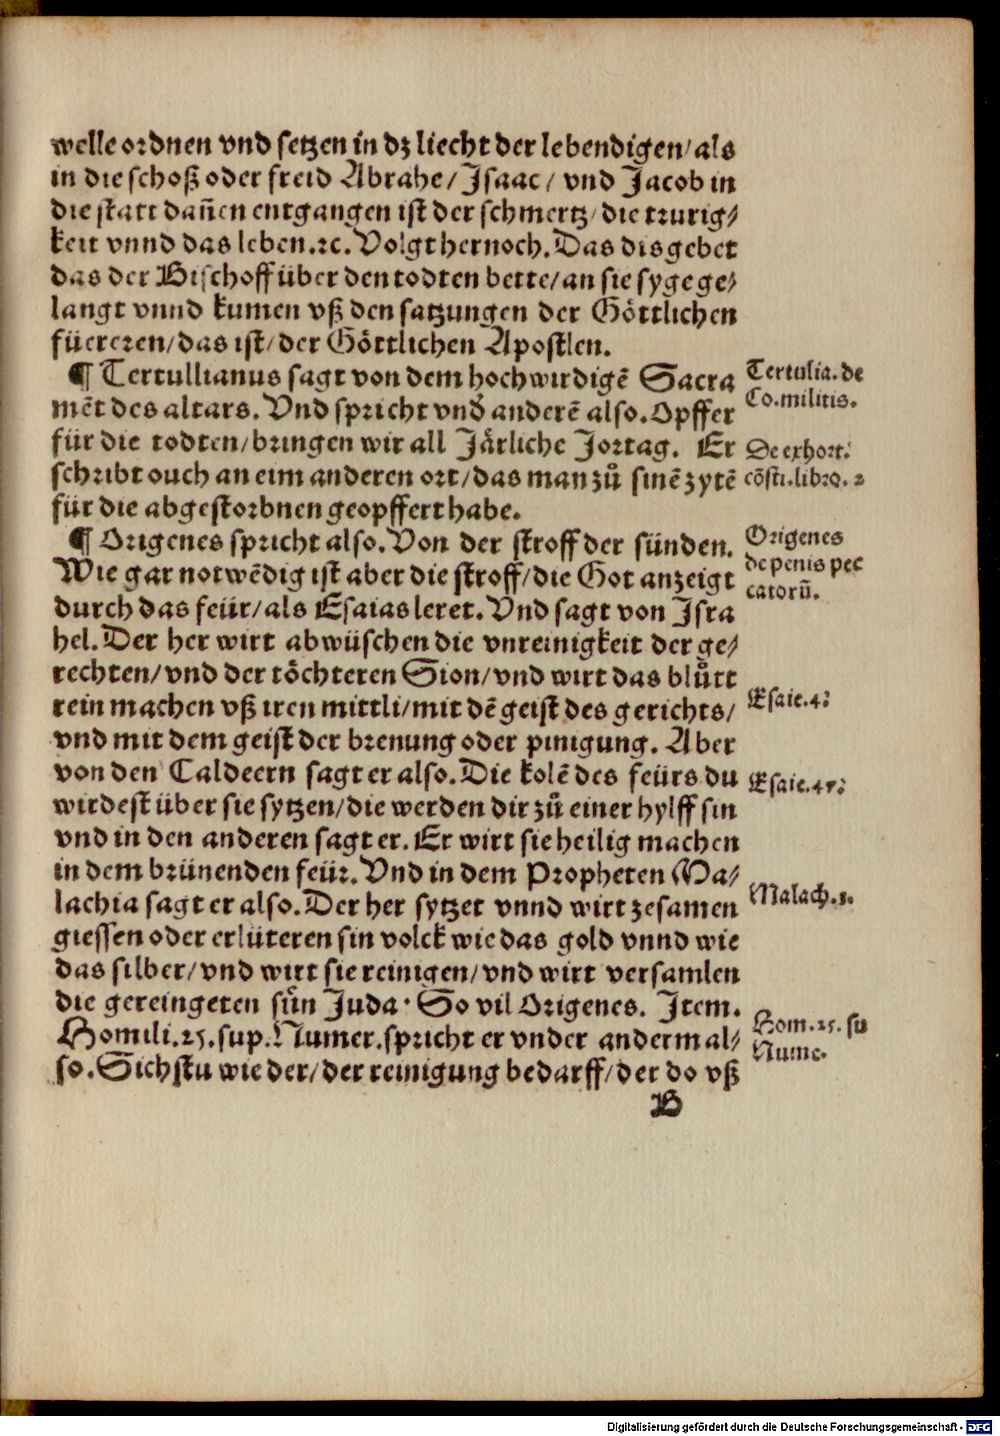 welle ordnen vnd setzen in dz liecht der lebendigen/als
in die schoß oder freid Abrahe/Jsaac/ vnd Jacob in
die statt dañen entgangen ist der schmertz/die trurig⸗
keit vnnd das leben.ꝛc. Volgt hernoch. Das dis gebet
das der Bischoff über den todten bette/an sie sy gege⸗
langt vnnd kumen vß den satzungen der Göttlichen
füereren/das ist/der Göttlichen Apostlen.
¶ Tertullianus sagt von dem hochwirdigē Sacra
mēt des altars. Vnd spricht vnd̓ anderē also. Opffer
für die todten/bringen wir all Järliche Jortag. Er
schribt ouch an eim anderen ort/das man zů sinē zytē
für die abgestorbnen geopffert habe.
¶ Origenes spricht also. Von der stroff der sünden.
Wie gar notwēdig ist aber die stroff/die Got anzeigt
durch das feür/als Esaias leret. Vnd sagt von Jsra
hel. Der her wirt abwüschen die vnreinigkeit der ge⸗
rechten/vnd der töchteren Sion/vnd wirt das blůtt
rein machen vß iren mittli/mit dē geist des gerichts/
vnd mit dem geist der brenung oder pinigung. Aber
von den Caldeern sagt er also. Die kolē des feürs du
wirdest über sie sytzen/die werden dir zů einer hylff sin
vnd in den anderen sagt er. Er wirt sie heilig machen
in dem brünenden feür. Vnd in dem Propheten Ma⸗
lachia sagt er also. Der her sytzet vnnd wirt zesamen
giessen oder erlüteren sin volck wie das gold vnnd wie
das silber/vnd wirt sie reinigen/vnd wirt versamlen
die gereingeten sün Juda. So vil Origenes. Jtem.
Homili.25.sup.Numer.spricht er vnder anderm al⸗
so. Sichstu wie der/der reinigung bedarff/der do vß
B
Tertulia. de
Co.militis.
De exhort.
cōsti.libro. 2
Origenes
de penis pec
catorū.
Esaie.4.
Esaie.47.
Malach.3.
Hom.25. su
Nume.
Digitalisierung gefördert durch die Deutsche Forschungsgemeinschaft - DFG